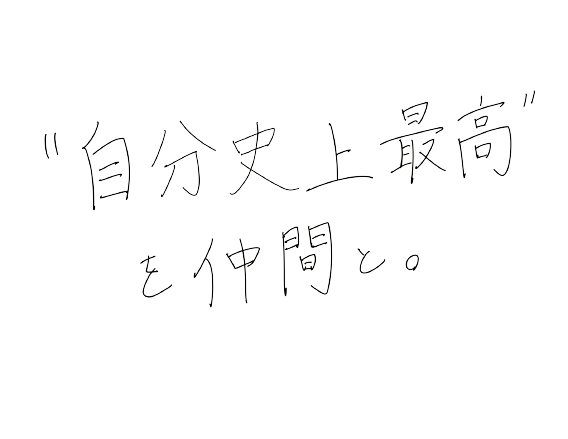 "自分史上最高"
を仲間と。